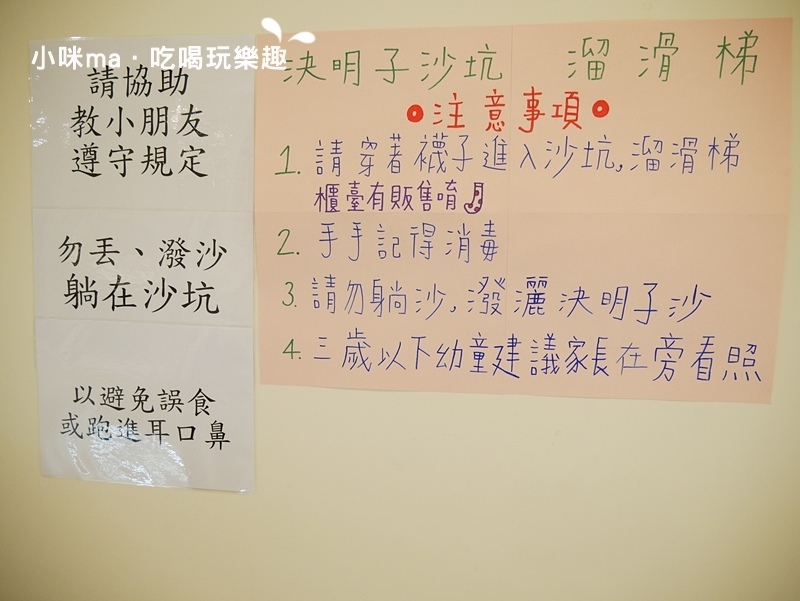 小咪ma・吃喝玩樂趣
請協助
教小朋友
遵守規定
勿丟、潑沙
躺在沙坑
以避免誤食
或跑進耳口鼻
決明子沙坑 溜滑梯
注意事項
1. 請穿著襪子進入沙坑,溜滑梯
櫃臺有販售唷
2. 手手記得消毒
3. 請勿躺沙,潑灑決明子沙
4. 三歲以下幼童建議家長在旁看照